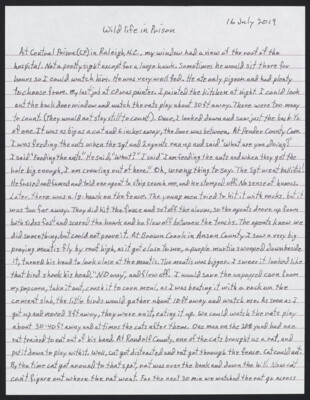 16 July 2019
Wild life in Prison
At Central Prison (CP) in Raleigh, N.C., my window had a view of the roof of the
hospital. Not a pretty sight except for a large hawk. Sometimes he would sit there for
hours so I could watch him. He was very well fed. He ate only pigeon and had plenty
to choose from. My last job at CP was painter. I painted the kitchen at night. I could look
out the back door window and watch the rats play about 30 ft away. There were too many
to count. (They would not stay still to count). Once, I looked down and saw just the back ½
of one. It was as big as a cat and 6 inches away, the door was between. At Pender County Corr.
I was feeding the ants when the Sgt and 2 agents ran up and said "What are you doing?"
I said "Feeding the ants." He said, "What?" I said "I am feeding the ants and when they get the
hole big enough, I am crawling out of here." Oh, wrong thing to say. The Sgt went ballistic.
He fussed and fumed and told one agent to strip search me, and He stomped off. No sense of humor.
Later, there was a hawk on the fence. The young men tried to hit it with rocks, but it
was too far away. They did hit the fence and set off the alarm, so the agents drove up from
both sides fast and scared the hawk and he flew off between the trucks. The agents knew we
did something, but could not prove it. At Brown Creek in Anson County, I saw a very big
praying mantis fly by roof high, as it got close to me, a purple martin swooped down beside
it, turned his head to look close at the mantis. The mantis was bigger. I swear it looked like
that bird shook his head, "NO way", and flew off. I would save the unpopped corn from
my popcorn, take it out, crack it to corn meal, as I was beating it with a rock on the
cement slab, the little birds would gather about 10 ft away and watch me. As soon as I
got up and moved 5 ft away, they were on it, eating it up. We could watch the rats play
about 30-40 ft away and at times the cats after them. One man on the yard had one
rat trained to eat out of his hand. At Randolf County, one of the cats brought us a rat, and
put it down to play with it. Well, cat got distracted and rat got through the fence. Cat could not.
By the time cat got around to that spot, rat was over the bank and down the hill. Now cat
can't figure out where the rat went. For the next 30 min we watched the cat go across